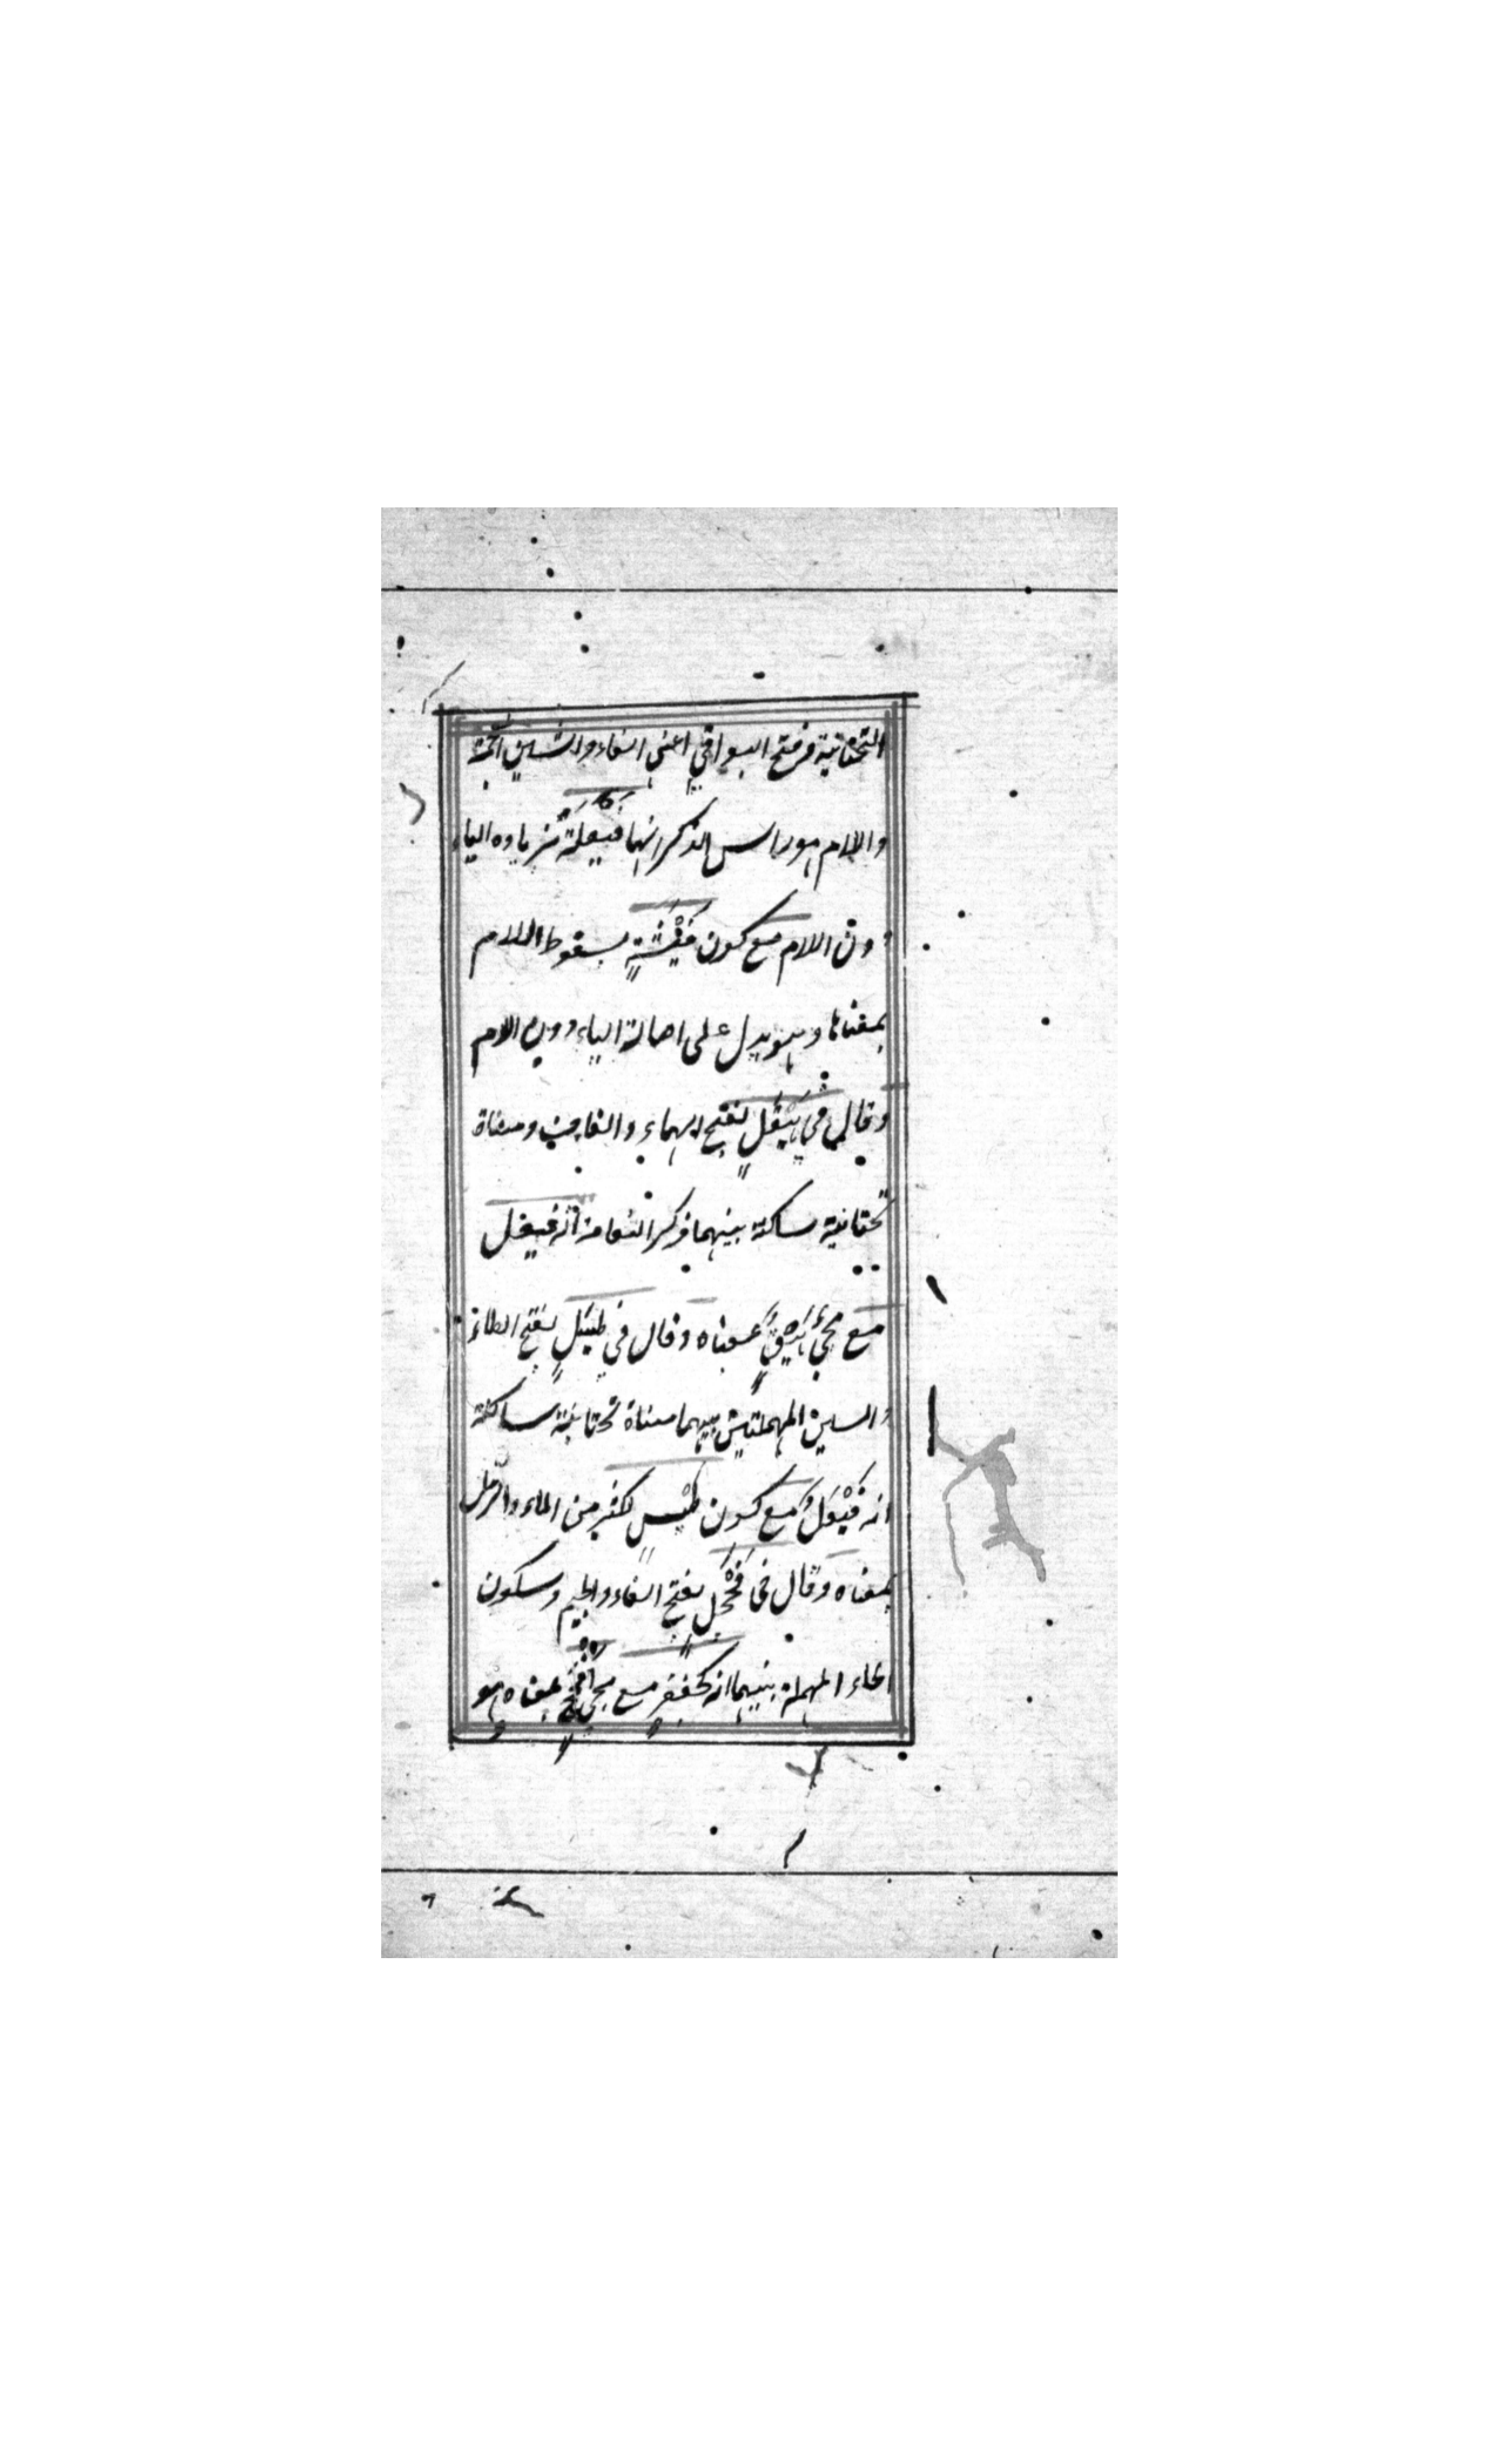 التحتانية وفتح البواقي اعني الفاء والشين المعجمة
واللام هو راس الذكر انها فيعلة بزيادة الياء
دون اللام مع كون فَيْشَةٍ بسقوط اللام
بمعناها وهو يدل على اصالة الياء دون اللام
وقال في هَيْقَلٍ بفتح الهاء والقاف ومثناة
تحتانية ساكنة بينهما ذكر النعامة انه فيعل
مع مجئ هَيْقٍ بمعناه وقال في طَيْسَلٍ بفتح الطاء
والسين المهملتين بينهما مثناة تحتانية ساكنة
انه فَيْعَلٌ مع كون طَيْسٍ لكثير من الماء والرمل
بمعناه وقال في فَحْجَلٍ بفتح الفاء والجيم وسكون
الحاء المهملة بينهما انه كجعفر مع مجئ افحج بمعناه هو